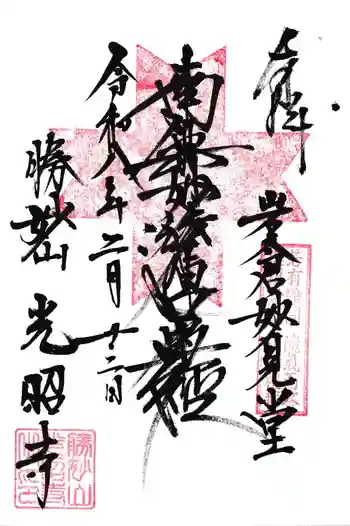 奉拝
岩倉妙見堂
南無妙法蓮華経
令和八年二月十二日
勝妙山 光昭寺
勝妙山